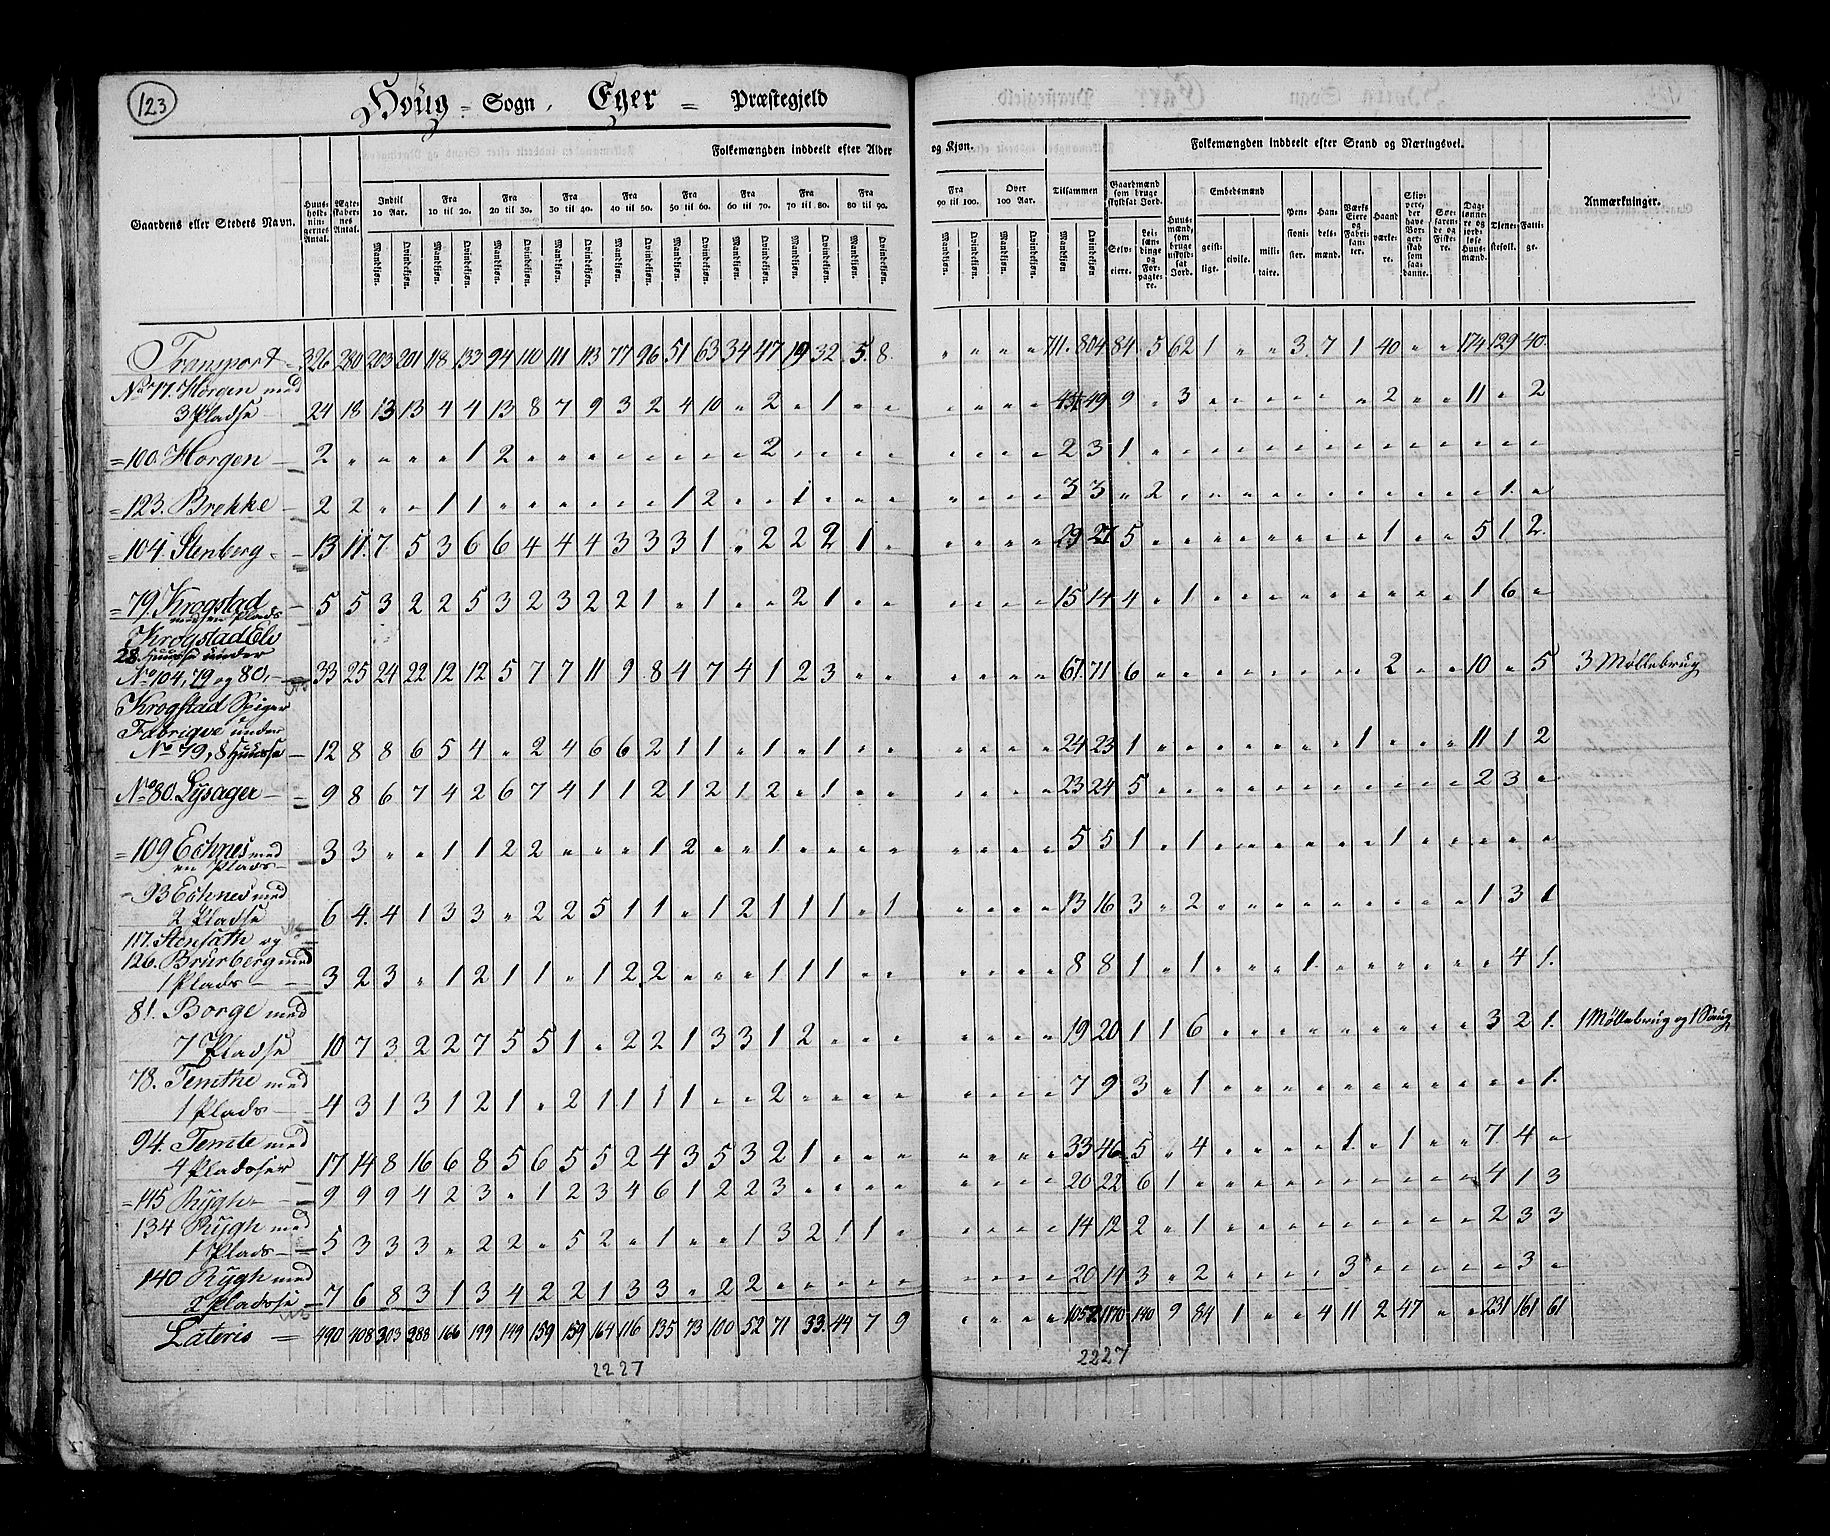 123
Houg = Sogn, Eger = Præstegjeld
Folkemængden inddeelt efter Alder og Kjøn. Folkemængden inddeelt efter Stand og Næringsvei.
Gaardens eller Stedets Navn. Huusholdningernes Antal. Ægteskabernes Antal. Indtil 10 Aar. Fra 10 til 20. Fra 20 til 30. Fra 30 til 40. Fra 40 til 50. Fra 50 til 60. Fra 60 til 70. Fra 70 til 80. Fra 80 til 90. Fra 90 til 100. Over 100 Aar. Tilsammen Gaardmænd som bruge skyldsat Jord. Selveiere. Leilændinge og Forpagtere. Huusmænd, som bruge uskyldsat Jord. Embedsmænd geistlige. civile. militaire. Pensionister. Handelsmænd. Værks Eiere og Fabrikanter. Haandværkere. Skippere, der have Borgerskab som saadanne. Søefarende og Fiskere. Daglønnere og jordløse Huusmænd. Tjenestefolk. Fattige. Anmærkninger.
Mandkjøn. Qvindekjøn. Mandkjøn. Qvindekjøn. Mandkjøn. Qvindekjøn. Mandkjøn. Qvindekjøn. Mandkjøn. Qvindekjøn. Mandkjøn. Qvindekjøn. Mandkjøn. Qvindekjøn. Mandkjøn. Qvindekjøn. Mandkjøn. Qvindekjøn. Mandkjøn. Qvindekjøn. Mandkjøn. Qvindekjøn. Mandkjøn. Qvindekjøn.
Transport 326 280 203 201 118 133 94 110 111 113 77 96 51 63 34 47 19 32 5 8 " " " " 711 804 84 5 62 1 " " 3 7 1 40 " " 174 129 40
No 77. Horgen med
3 Pladse 24 18 13 13 4 4 13 8 7 9 3 2 4 10 " 2 " 1 " " " " " " 49 9 " 3 " " " " " " 2 " " 11 " 2
= 100. Horgen 2 " " " " 1 2 " " " " " " " " 2 " " " " " " " " 2 3 1 " " " " " " " " " " " " " "
= 123. Brekke 2 2 " " 1 1 " " " " " " 1 2 " " 1 " " " " " " " 3 3 " 2 " " " " " " " " " " " 1 "
= 104. Stenberg 13 11 7 5 3 6 6 4 4 4 3 3 3 1 " 2 2 2 1 " " " " " 29 27 5 " " " " " " " " 1 " " 5 1 2
= 79. Krogstad
med en Plads 5 5 3 2 2 5 3 2 3 2 2 1 " 1 " " 2 1 " " " " " " 15 14 4 " 1 " " " " " " " " " 1 6 "
Krogstad Elv
28 Huusse under
No 104, 79 og 80, 33 25 24 22 12 12 5 7 7 11 9 8 4 7 4 1 2 3 " " " " " " 67 71 6 " " " " " " " " 2 " " 10 " 5 3 Møllebrug
Krogstad Spiger
Fabriqve under
No 79, 8 Huusse 12 8 8 6 5 4 " 2 4 6 6 2 1 1 " 1 " 1 " " " " " " 24 23 1 " " " " " " " 1 " " " 11 1 2
No 80. Lysager 9 8 6 7 4 2 6 7 4 1 1 2 1 2 1 2 " 1 " " " " " " 23 24 5 " " " " " " " " " " " 2 3 "
= 109 Echnes med
en Plads 3 3 " " 1 1 2 2 " " " 1 2 " " 1 " " " " " " " " 5 5 1 " 1 " " " " " " 1 " " " " "
= 93 Echnes med
2 Pladse 6 4 4 1 3 3 " 2 2 5 1 1 " 1 2 1 1 1 " 1 " " " " 13 16 3 " 2 " " " " " " " " " 1 3 1
117. Stensæth og
126. Brurberg med
1 Plads 3 2 3 " 1 2 1 1 " 1 2 2 " " " 1 1 1 " " " " " " 8 8 1 " 1 " " " 1 " " " " " " 4 1
81. Borge med
7 Pladse 10 7 3 2 2 7 5 5 1 " 2 2 1 3 3 1 2 " " " " " " " 19 20 1 1 6 " " " " " " " " " 3 2 1 1 Møllebrug og 1 Saug
78. Temthe med
1 Plads 4 3 1 3 1 2 1 " 2 1 1 1 1 " " 2 " " " " " " " " 7 9 3 " 1 " " " " " " " " " " " 1
94. Temte med
4 Pladsser 17 14 8 16 6 8 5 6 5 5 2 4 3 5 3 2 1 " " " " " " " 33 46 5 " 4 " " " " 1 " 1 " " 7 4 "
= 145 Rygh 9 9 9 4 2 3 " 1 2 3 4 6 1 2 2 3 " " " " " " " " 20 22 6 1 " " " " " " " " " " 4 1 3
134 Rygh med
1 Plads 5 3 3 3 " 2 2 " 5 2 " 1 " " 1 3 2 1 1 " " " " " 14 12 2 " 1 " " " " " " " " " 2 3 3
140 Rygh med
2 Pladsse 7 6 8 3 1 3 4 2 2 1 3 3 " 2 2 " " " " " " " " " 20 14 3 " 2 " " " " 3 " " " " " 3 "
Lateris = 490 408 303 288 166 199 149 159 159 164 116 135 73 100 52 71 33 44 7 9 " " " " 1057 1170 140 9 84 1 " " 4 11 2 47 " " 231 161 61
2227 2227